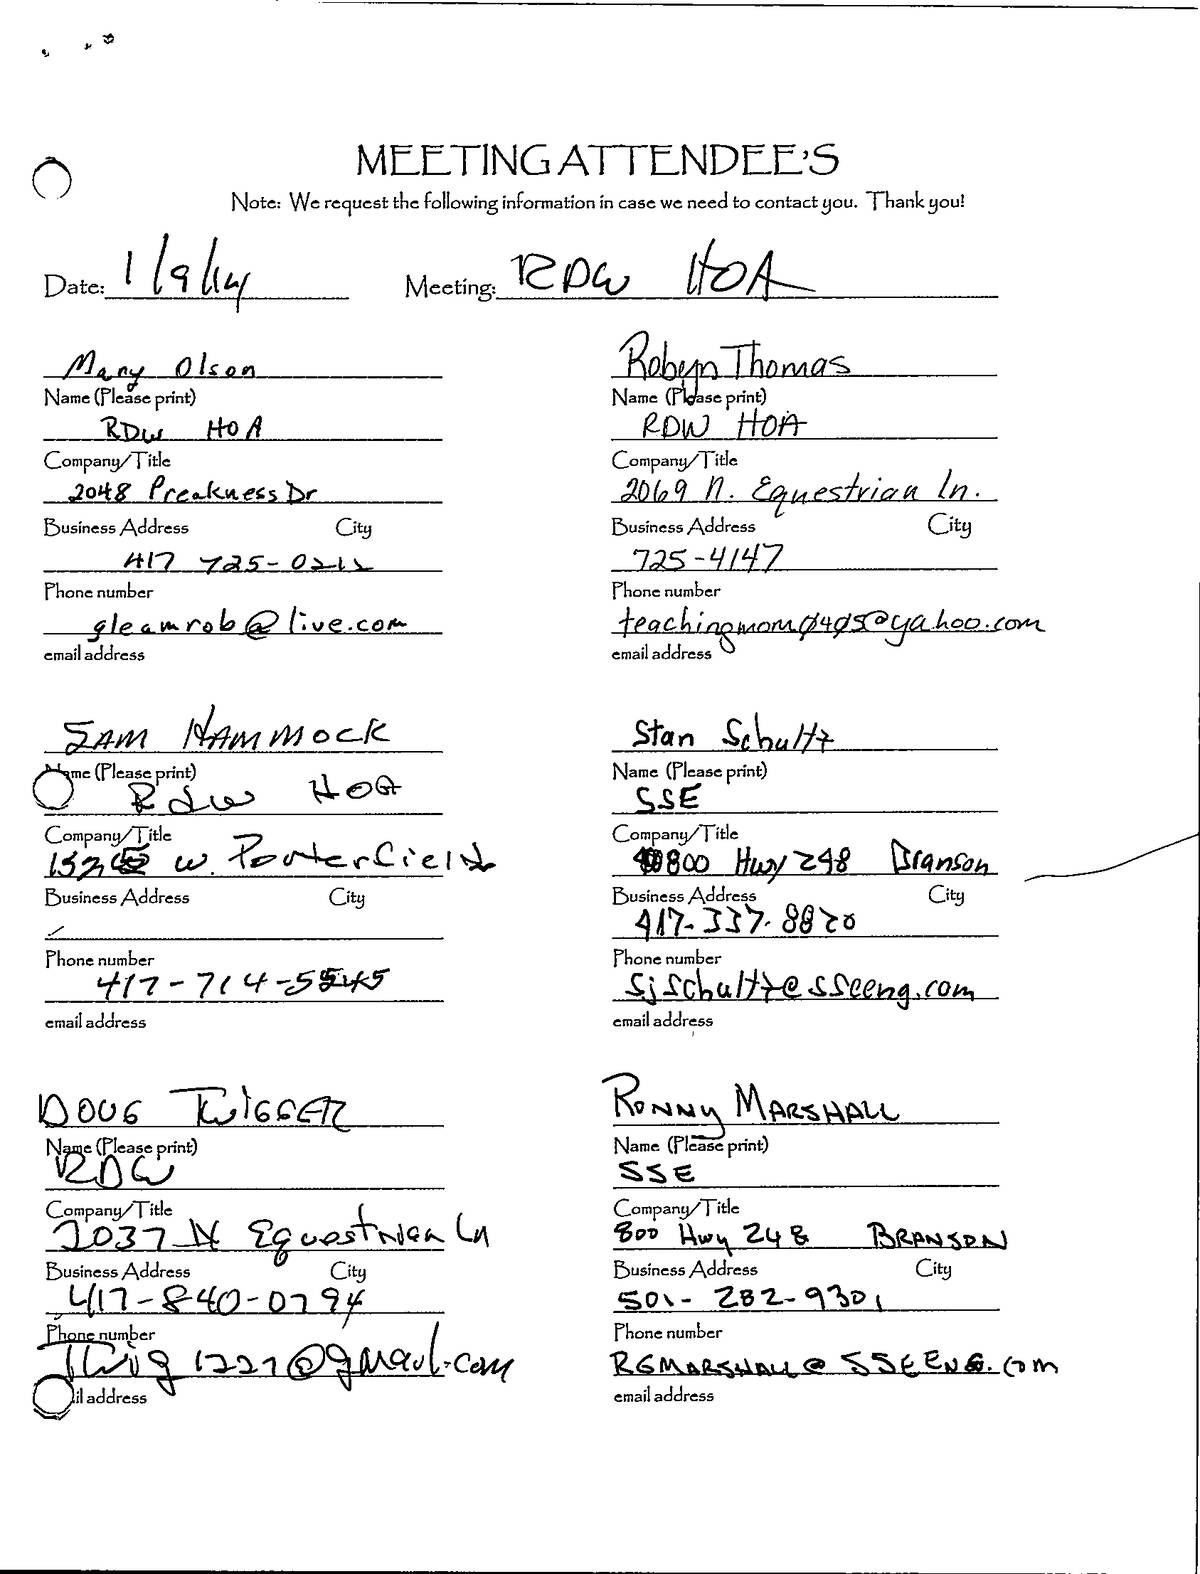 MEETING ATTENDEE'S
Note: We request the following information in case we need to contact you. Thank you!
Date: 1/9/14 Meeting: RDW HOA
Mary Olson
Name (Please print)
RDW HOA
Company/Title
2048 Preakness Dr
Business Address City
417 725-0211
Phone number
gleamrob@live.com
email address
Robyn Thomas
Name (Please print)
RDW HOA
Company/Title
2069 N. Equestrian ln.
Business Address City
725-4147
Phone number
teachingmom0405@yahoo.com
email address
SAM HAMMOCK
Name (Please print)
RDW HOA
Company/Title
W. Porterfield
Business Address City
Phone number
417-714-5545
email address
Stan Schultz
Name (Please print)
SSE
Company/Title
800 Hwy 248 Branson
Business Address City
417-337-8820
Phone number
sjschultz@sseeng.com
email address
DOUG TWIGGER
Name (Please print)
RDW
Company/Title
2037 N Equestrian Ln
Business Address City
417-840-0794
Phone number
Twig1227@gmail.com
il address
RONNY MARSHALL
Name (Please print)
SSE
Company/Title
800 Hwy 248 BRANSON
Business Address City
501-282-9301
Phone number
RGMARSHALL@SSEENG.com
email address